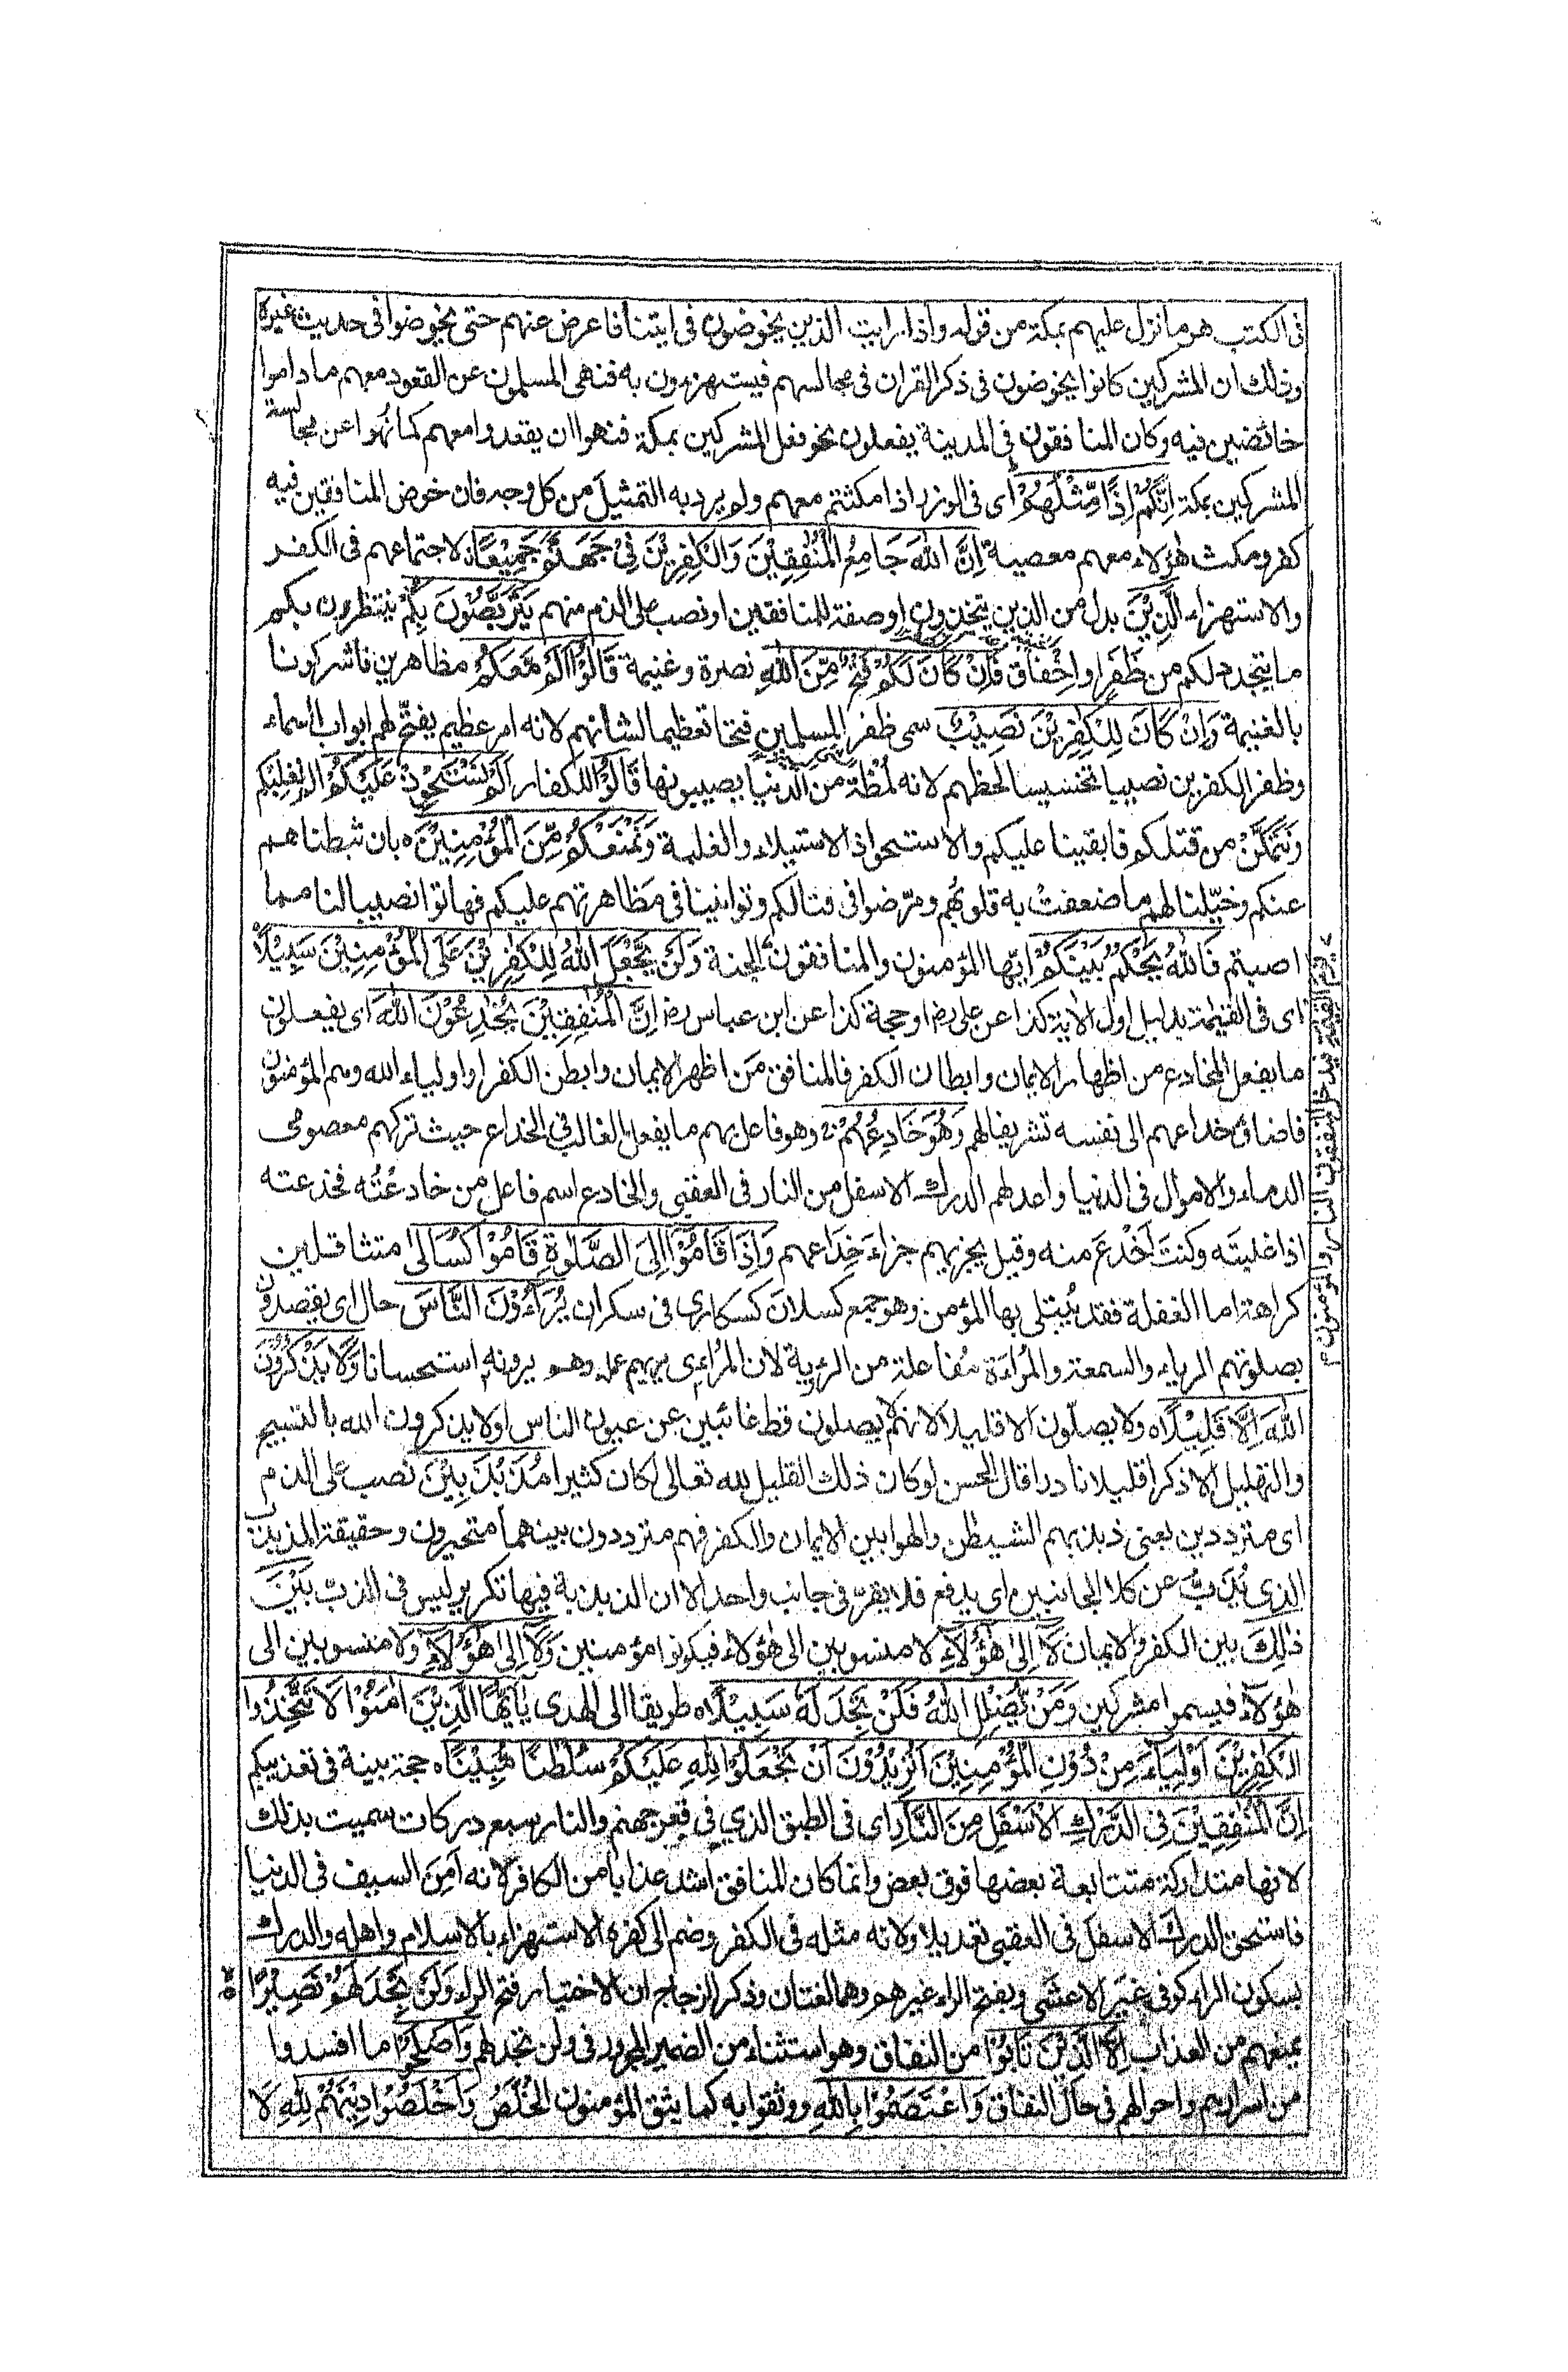 فى الكتب هو ما نزل عليهم بمكة من قوله واذا رايت الذين يخوضون فى ايتنا فاعرض عنهم حتى يخوضوا فى حديث غيره
وذلك ان المشركين كانوا يخوضون فى ذكر القران فى مجالسهم فيستهزءون به فنهى المسلمون عن القعود معهم ما داموا
خائضين فيه وكان المنافقون فى المدينة يفعلون نحو فعل المشركين بمكة فنهوا ان يقعدوا معهم كما نُهوا عن مجالسة
المشركين بمكة اِنَّكُمْ اِذًا مِّثْلُهُمْ اى فى الوزر اذا مكثتم معهم ولم يرد به التمثيل من كل وجه فان خوض المنافقين فيه
كفر ومكث هؤلاء معهم معصية اِنَّ اللّٰهَ جَامِعُ الْمُنٰفِقِيْنَ وَالْكٰفِرِيْنَ فِيْ جَهَنَّمَ جَمِيْعًا لاجتماعهم فى الكفر
والاستهزاء الَّذِيْنَ بدل من الذين يتخذون او صفة للمنافقين او نصب على الذم منهم يَتَرَبَّصُوْنَ بِكُمْ ينتظرون بكم
ما يتجدد لكم من ظَفَرٍ او اِخْفاق فَاِنْ كَانَ لَكُمْ فَتْحٌ مِّنَ اللّٰهِ نصرة وغنيمة قَالُوْٓا اَلَمْ نَكُنْ مَّعَكُمْ مظاهرين فاشركونا
بالغنيمة وَاِنْ كَانَ لِلْكٰفِرِيْنَ نَصِيْبٌ سمى ظفر المسلمين فتحا تعظيما لشانهم لانه امر عظيم يفتّح لهم ابواب السماء
وظفر الكفرين نصيبا تخسيسا لحظهم لانه لُمْظة من الدنيا يصيبونها قَالُوْٓا للكفار اَلَمْ نَسْتَحْوِذْ عَلَيْكُمْ الم نغلبكم
ونتمكّن من قتلكم فابقينا عليكم والاستحواذ الاستيلاء والغلبة وَنَمْنَعْكُمْ مِّنَ الْمُؤْمِنِيْنَ ه بان ثبطناهم
عنكم وخيّلنا لهم ما ضعفتْ به قلوبُهم ومرّضوا فى قتالكم وتوانينا فى مظاهرتهم عليكم فهاتوا نصيبا لنا مما
اصبتم فَاللّٰهُ يَحْكُمُ بَيْنَكُمْ ايها المؤمنون والمنافقون الجنة وَلَنْ يَّجْعَلَ اللّٰهُ لِلْكٰفِرِيْنَ عَلَى الْمُؤْمِنِيْنَ سَبِيْلًا
اى فى القيٰمة بدليل اول الاية كذا عن على رض او حجة كذا عن ابن عباس رض اِنَّ الْمُنٰفِقِيْنَ يُخٰدِعُوْنَ اللّٰهَ اى يفعلون
ما يفعل المخادع من اظهار الايمان وابطان الكفر فالمنافق مَن اظهر الايمان وابطن الكفر او اولياء الله وهم المؤمنون
فاضاف خداعهم الى نفسه تشريفا لهم وَهُوَ خَادِعُهُمْ وهو فاعل بهم ما يفعل الغالب فى الخداع حيث تركهم معصومى
الدماء والاموال فى الدنيا واعد لهم الدرك الاسفل من النار فى العقبى والخادع اسم فاعل من خادعْتُه فخدعته
اذا غلبتَه وكنتَ اَخْدعَ منه وقيل يجزيهم جزاءَ خِدَاعهم وَاِذَا قَامُوْٓا اِلَى الصَّلٰوةِ قَامُوْا كُسَالٰى متثاقلين
كراهة اما الغفلة فقد يُبتلى بها المؤمن وهو جمع كسلان كسكارى فى سكران يُرَآءُوْنَ النَّاسَ حال اى يقصدون
بصلوتهم الرياء والسمعة والمُراءة مُفاعلة من الرءية لان المُرائى يريهم عمله وهم يرونه استحسانا وَلَا يَذْكُرُوْنَ
اللّٰهَ اِلَّا قَلِيْلًا ه ولا يصلّون الا قليلا لانهم لا يصلون قط غائبين عن عيون الناس او لا يذكرون الله بالتسبيح
والتهليل الا ذكرا قليلا نادرا قال الحسن لو كان ذلك القليل لله تعالى لكان كثيرا مُذَبْذَبِيْنَ نصب على الذم
اى مترددين يعنى ذبذبهم الشيطٰن والهوا بين الايمان والكفر فهم مترددون بينهما متحيرون وحقيقة المذبذب
الذى يُذَبّ عن كلا الجانبين اى يدفع فلا يقرّ فى جانب واحد الا ان الذبذبة فيها تكرير ليس فى الذبّ بَيْنَ
ذٰلِكَ بين الكفر والايمان لَآ اِلٰى هٰٓؤُلَآءِ لا منسوبين الى هؤلاء فيكونوا مؤمنين وَلَآ اِلٰى هٰٓؤُلَآءِ ولا منسوبين الى
هٰؤلاء فيسموا مشركين وَمَنْ يُّضْلِلِ اللّٰهُ فَلَنْ تَجِدَ لَهٗ سَبِيْلًا ه طريقا الى الهدى يٰٓاَيُّهَا الَّذِيْنَ اٰمَنُوْا لَا تَتَّخِذُوا
الْكٰفِرِيْنَ اَوْلِيَآءَ مِنْ دُوْنِ الْمُؤْمِنِيْنَ اَتُرِيْدُوْنَ اَنْ تَجْعَلُوْا لِلّٰهِ عَلَيْكُمْ سُلْطٰنًا مُّبِيْنًا ه حجة بينة فى تعذيبكم
اِنَّ الْمُنٰفِقِيْنَ فِى الدَّرْكِ الْاَسْفَلِ مِنَ النَّارِ اى فى الطبق الذى فى قعر جهنم والنار سبع دركات سميت بذلك
لانها متداركة متتابعة بعضها فوق بعض وانما كان المنافق اشد عذابا من الكافر لانه اَمِنَ السيف فى الدنيا
فاستحق الدرك الاسفل فى العقبى تعديلا ولانه مثله فى الكفر وضم الى كفره الاستهزاء بالاسلام واهله والدرك
بسكون الراء كوفى غير الاعشى وبفتح الراء غيرهم وهما لغتان وذكر الزجاج ان الاختيار فتح الراء وَلَنْ تَجِدَ لَهُمْ نَصِيْرًا
يمنعهم من العذاب اِلَّا الَّذِيْنَ تَابُوْا من النفاق وهو استثناء من الضمير المجرور فى ولن تجد لهم وَاَصْلَحُوْا ما افسدوا
من اسرارهم واحوالهم فى حال النفاق وَاعْتَصَمُوْا بِاللّٰهِ ووثقوا به كما يثق المؤمنون الخُلَّصُ وَاَخْلَصُوْا دِيْنَهُمْ لِلّٰهِ لا